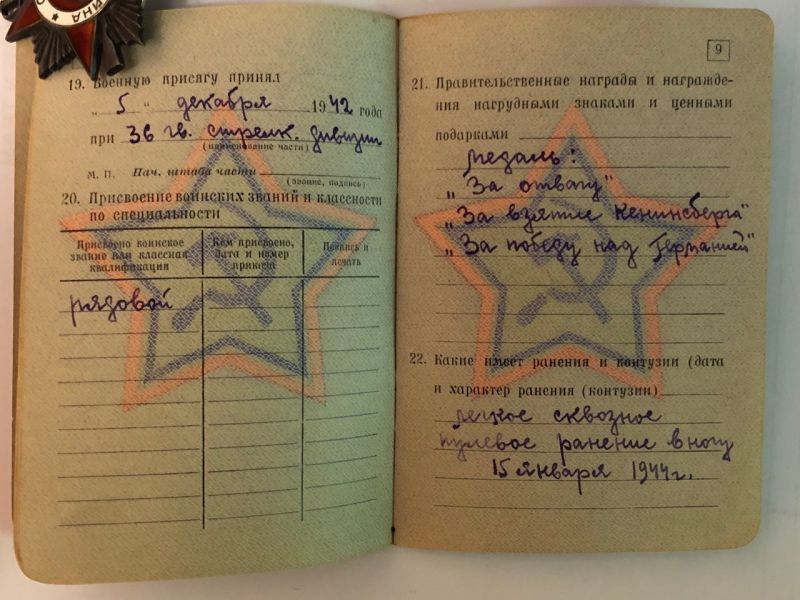 19. Военную присягу принял
„ 5 “ декабря 1942 года
при 36 гв. стрелк. дивизии
(наименование части)
М. П. Нач. штаба части
(звание, подпись)
20. Присвоение воинских званий и классности
по специальности
Присвоено воинское звание или классная квалификация
Кем присвоено, дата и номер приказа
Подпись и печать
рядовой
9
21. Правительственные награды и награжде-
ния нагрудными знаками и ценными
подарками
медаль:
„За отвагу"
„За взятие Кенинсберга"
„За победу над Германией"
22. Какие имеет ранения и контузии (дата
и характер ранения (контузии)
легкое сквозное
пулевое ранение в ногу
15 января 1944 г.